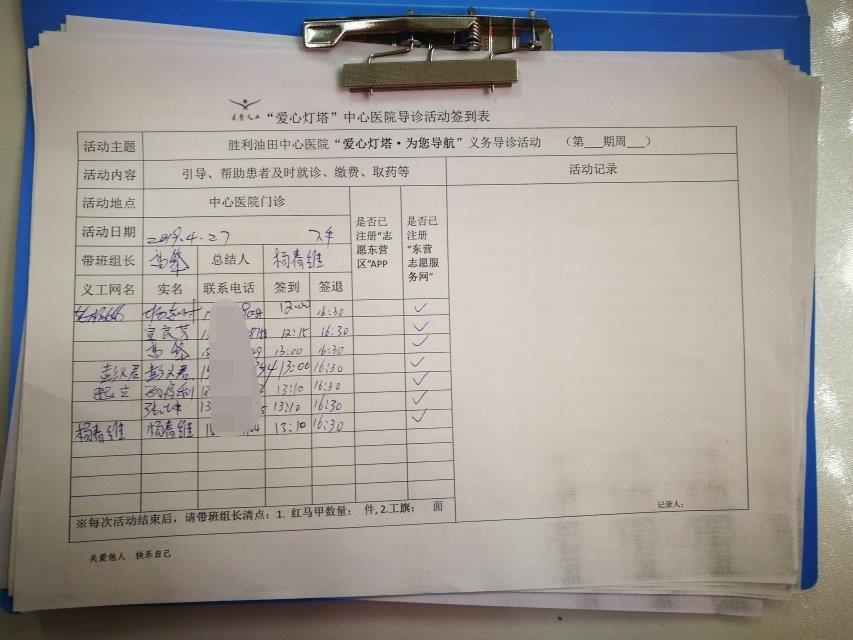 “爱心灯塔”中心医院导诊活动签到表
活动主题 胜利油田中心医院“爱心灯塔·为您导航”义务导诊活动 （第___期周___）
活动内容 引导、帮助患者及时就诊、缴费、取药等 活动记录
活动地点 中心医院门诊 是否已注册“志愿东营区”APP 是否已注册“东营志愿服务网”
活动日期 2019.4.27 下午
带班组长 高锋 总结人 杨春维
义工网名 实名 联系电话 签到 签退
12:00 16:30 ✓
宣良芳 12:15 16:30 ✓
高锋 13:00 16:30 ✓
彭义君 彭义君 13:00 16:30 ✓
13:10 16:30 ✓
13:10 16:30 ✓
杨春维 杨春维 13:10 16:30 ✓
※每次活动结束后，请带班组长清点：1. 红马甲数量： 件, 2.工旗： 面
记录人：
关爱他人 快乐自己